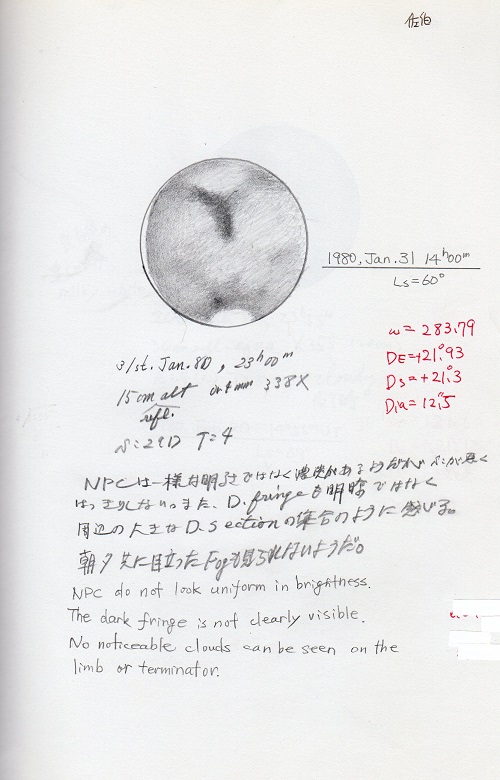 佐伯
1980, Jan. 31 14h00m
Ls=60°
ω = 283.79
DE=+21°.93
Ds=+21°.3
Dia=12".5
31st. Jan. 80, 23h00m
15cm alt or4mm 338X
refl.
T=4
NPCは一様な明るさではなく濃淡があるようだが
はっきりしない。また、D.fringeも明瞭ではなく
周辺の大きなD.sectionの集合のように感じる。
朝夕共に目立ったFogも見られないようだ。
NPC do not look uniform in brightness.
The dark fringe is not clearly visible.
No noticeable clouds can be seen on the
limb or terminator.